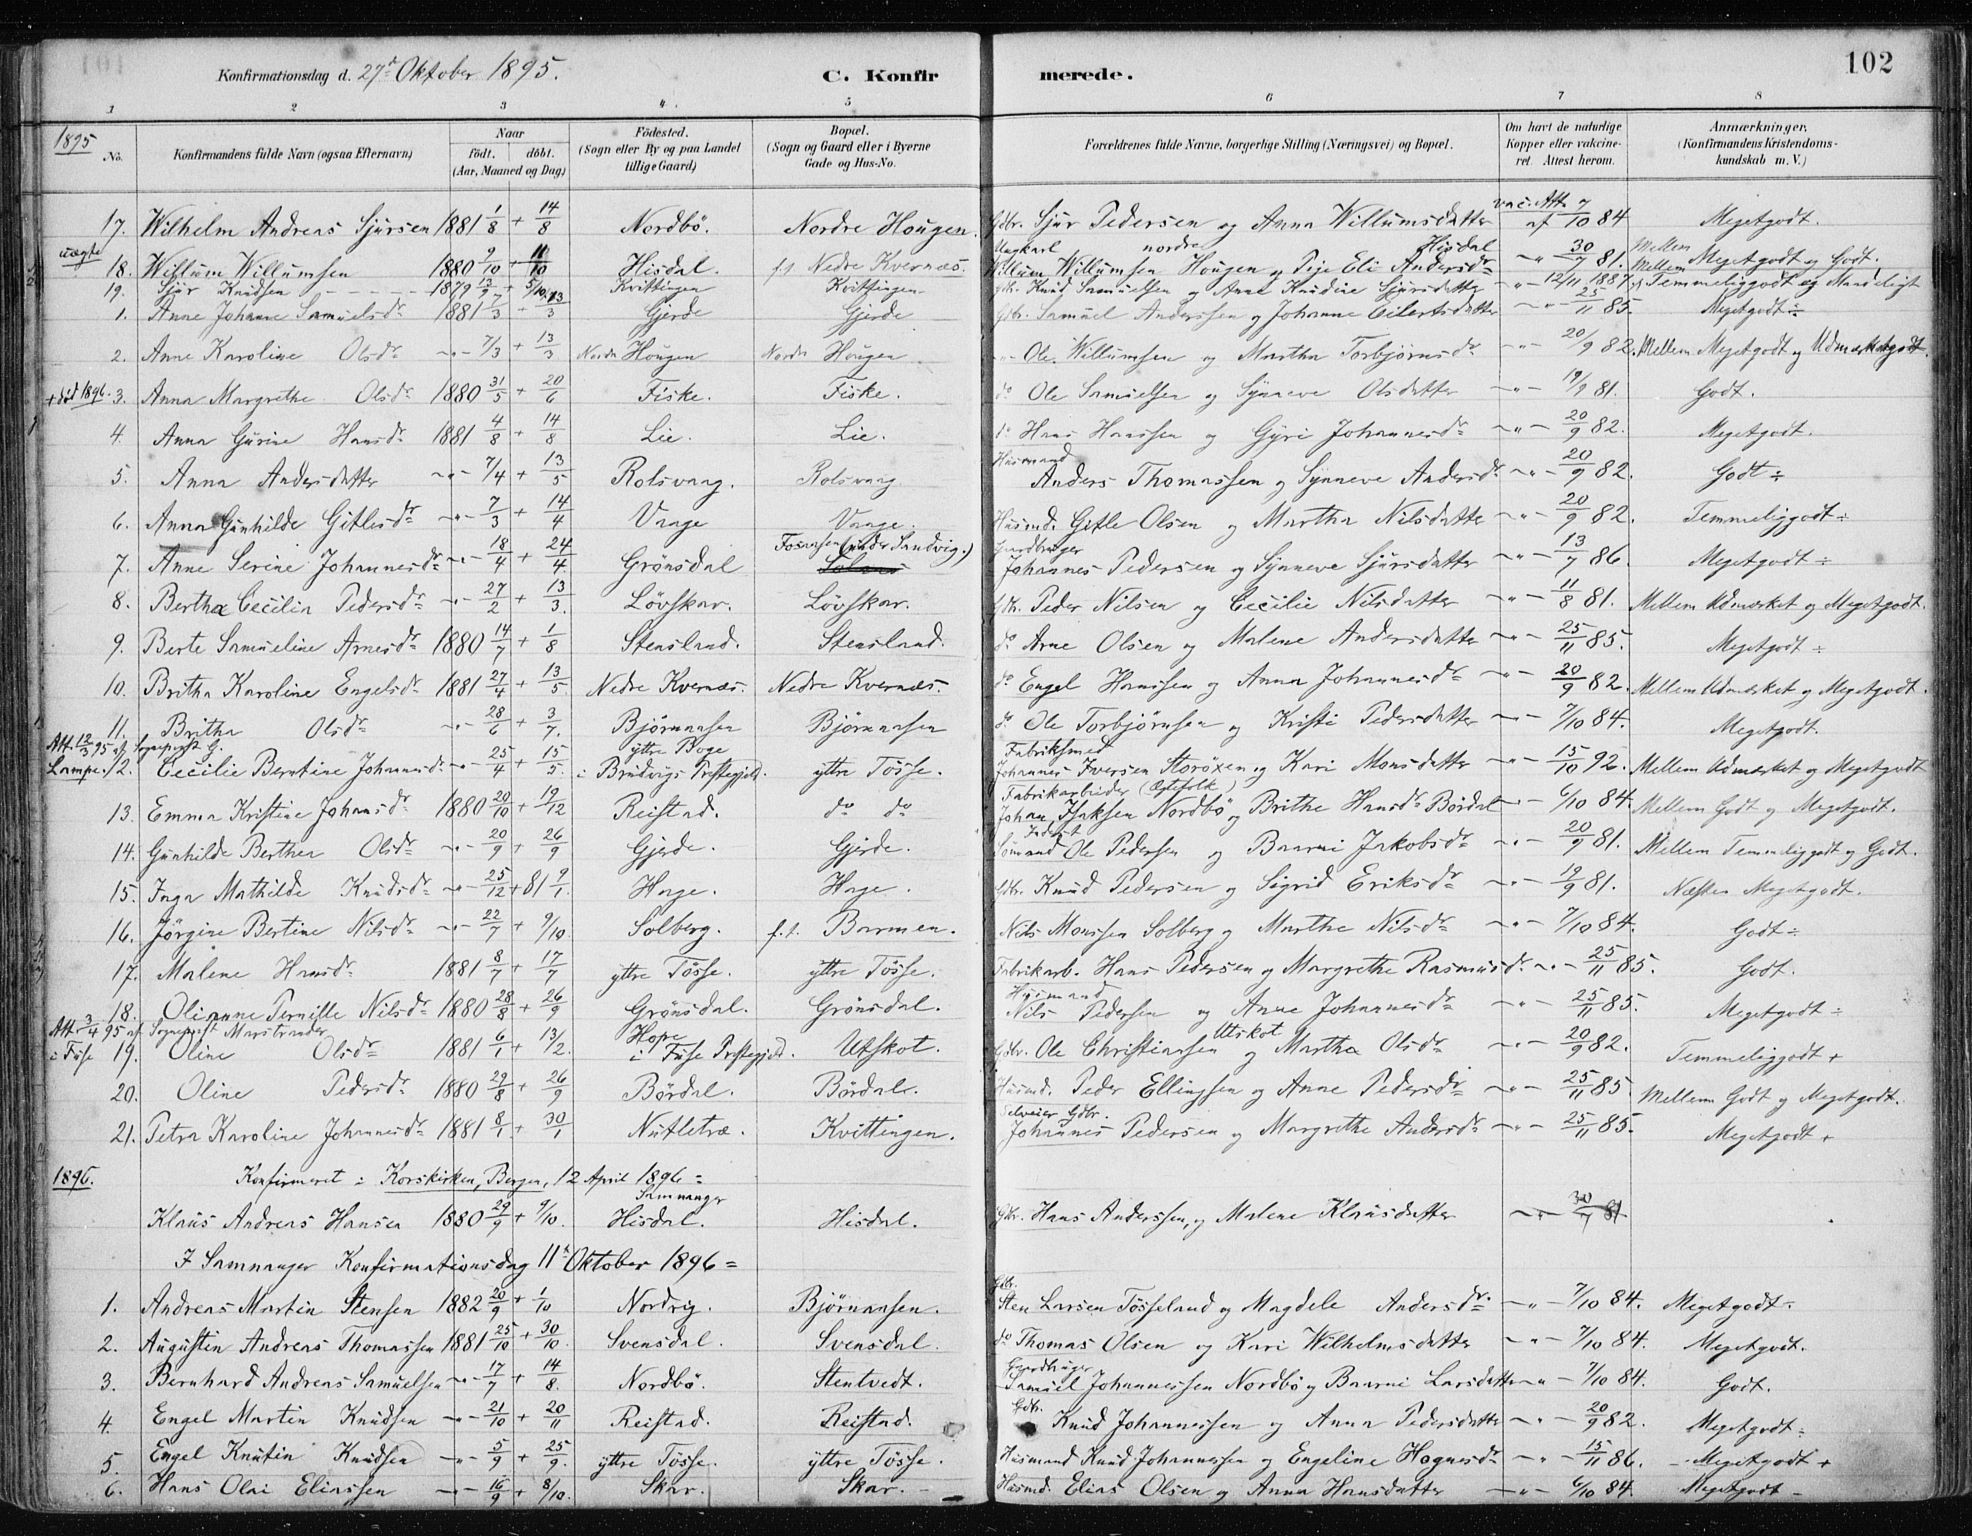 Konfirmationsdag d. 27de Oktober 1895. C. Konfirmerede. 102
1 2 3 4. 5 6 7 8
1895 No. Konfirmandens fulde Navn (ogsaa Efternavn) Naar født. døbt. (Aar, Maaned og Dag) Fødested. (Sogn eller By og paa Landet tillige Gaard) Bopæl. (Sogn og Gaard eller i Byerne Gade og Hus-No. Forældrenes fulde Navne, borgerlige Stilling (Næringsvei) og Bopæl. Om havt de naturlige Kopper eller vakcineret. Attest herom. Anmærkninger, (Konfirmandens Kristendomskundskab m. V.)
17. Wilhelm Andreas Sjursen 1881 1/8 + 14/8 Nordbö. Nordre Hougen. Gdbr. Sjur Pedersen og Anna Willumsdatter vac. Att. af 7/10 84 Megetgodt.
uægte 18. Willum Willumsen 1880 9/10 + 11/10 Hisdal. f.t. Nedre Kvernæs. Ungkarl Willum Willumsen nordre Hougen og Pige Eli Andersdr Hisdal -"- 30/7 81. Mellem Megetgodt og Godt.
19. Sjur Knudsen 1879 13/9 + 5/10 Kvittingen Kvittingen Gdbr. Knud Samuelsen og Anne Knudine Sjursdatter -"- 12/11 1887. Mellem Temmeliggodt og Maadeligt
1. Anne Johanne Samuelsdr 1881 1/3 + 13/3 Gjerde Gjerde Gdbr. Samuel Anderssen og Johanne Eilertsdatter -"- 25/11 85. Megetgodt ÷
2. Anne Karoline Olsdr -"- 7/3 + 13/3 Nordre Hougen Nordre Hougen -"- Ole Willumsen og Martha Torbjörnsdr -"- 20/9 82. Mellem Megetgodt og Udmærketgodt.
+ död 1896. 3. Anna Margrethe Olsdr 1880 31/5 + 20/6 Fiske. Fiske. do Ole Samuelsen og Synneve Olsdatter -"- 19/9 81. Godt.
4. Anna Gurine Hansdr 1881 4/8 + 14/8 Lie. Lie. do Hans Hanssen og Gyri Johannesdr -"- 20/9 82. Megetgodt.
5. Anna Andersdatter -"- 7/4 + 13/5 Rolsvaag. Rolsvaag Husmand Anders Thomassen og Synneve Andersdr -"- 20/9 82. Godt ÷
6. Anna Gunhilde Gitlesdr -"- 7/3 + 14/4 Vaage Vaage. Husmd. Gitle Olsen og Martha Nilsdatter -"- 20/9 82. Temmeliggodt ÷
7. Anne Serine Johannesdr -"- 18/4 + 24/4 Grönsdal (under Sandvig.) Gaardbruger Johannes Pedersen og Synneve Sjursdatter -"- 13/7 86. Megetgodt ÷
8. Bertha Cecilia Pedersdr -"- 27/2 + 13/3. Lövskar. Lövskar. Gdbr. Peder Nilsen og Cecilie Nilsdatter -"- 11/8 81. Mellem Udmærket og Megetgodt.
9. Berte Samueline Arnesdr 1880 14/7 + 1/8 Stensland. Stensland. do Arne Olsen og Malene Andersdatter -"- 25/11 85. Megetgodt ÷
10. Britha Karoline Engelsdr 1881 27/4 + 13/5 Nedre Kvernæs. Nedre Kvernæs. do Engel Hanssen og Anna Johannesdr -"- 20/9 82. Mellem Udmærket og Megetgodt.
11. Britha Olsdr -"- 28/6 + 3/7. Björnaasen Björnaasen do Ole Torbjörnsen og Kristi Pedersdatter -"- 7/10 84. Megetgodt.
Att. 12/3 95 af Sognepræst G. Lampe. 12. Cecilie Berntine Johannesdr -"- 25/4 + 15/5. yttre Boge i Brudvigs Præstegjeld. yttre Tösse. Fabriksmed Johannes Iversen Storöxen og Kari Monsdatter -"- 15/10 92. Mellem Udmærket og Megetgodt
13. Emma Kristine Johansdr 1880 20/10 + 19/12 Reistad. do do Fabrikarbeider (Ægtefolk) Johan Isaksen Nordbö og Brithe Hansdr Bördal -"- 6/10 84. Mellem Godt og Megetgodt.
14. Gunhilde Berthea Olsdr -"- 20/9 + 26/9 Gjerde. Gjerde. Inderst Sömand Ole Pedersen og Baarni Jakobsdr -"- 20/9 81. Mellem Temmeliggodt og Godt.
15. Inga Mathilde Knudsdr -"- 25/12 + 81 9/1. Hage. Hage. Gdbr. Knud Pedersen og Sigrid Eriksdr -"- 19/9 81. Næsten Megetgodt.
16. Jörgine Bertine Nilsdr -"- 22/7 + 9/10. Solberg. f.t. Barmen. Nils Monssen Solberg og Marthe Nilsdr -"- 7/10 84. Godt ÷
17. Malene Hansdr 1881 8/7 + 17/7 yttre Tösse. yttre Tösse. Fabrikarb. Hans Pedersen og Margrethe Rasmusdr -"- 25/11 85. Godt.
18. Olianne Pernille Nilsdr 1880 28/8 + 26/9 Grönsdal. Grönsdal. Husmand Nils Pedersen og Anne Johannesdr -"- 25/11 85. Megetgodt ÷
Att. 3/4 95 af Sognepræst Marstrander i Fuse 19. Oline Olsdr 1881 6/1 + 13/2. Hope i Fuse Præstegjeld. Utskot. Gdbr. Ole Christiansen Utskot og Martha Olsdr -"- 20/9 82. Temmeliggodt +
20. Oline Pedersdr 1880 29/8 + 26/9 Bördal. Bördal. Husmd. Peder Ellingsen og Anne Pedersdr -"- 25/11 85. Mellem Godt og Megetgodt.
21. Petra Karoline Johannesdr 1881 8/1 + 30/1 Nutletræ. Kvittingen. Selveier Gdbr. Johannes Pedersen og Margrethe Andersdr -"- 25/11 85. Megetgodt +
1896. Konfirmeret i Korskirken, Bergen, 12 April 1896 =
Klaus Andreas Hansen 1880 29/9 + 9/10. Samnanger Hisdal. Hisdal. Gdbr. Hans Anderssen, og Malene Klausdatter -"- 30/7 81
I Samnanger Konfirmationsdag 11te Oktober 1896 =
1. Andreas Martin Stensen 1882 20/9 + 1/10 Nordvig. Björnaasen. Gdbr. Sten Larsen Tösseland og Magdele Andersdr -"- 7/10 84. Megetgodt ÷
2. Augustin Andreas Thomassen 1881 25/10 + 30/10 Svensdal. Svensdal. do Thomas Olsen og Kari Wilhelmsdatter -"- 7/10 84. Megetgodt.
3. Bernhard Andreas Samuelsen -"- 17/7 + 14/8. Nordbö. Stentvedt. Gaardbruger Samuel Johannessen Nordbö og Baarni Larsdatter -"- 7/10 84. Godt.
4. Engel Martin Knudsen -"- 21/10 + 20/11 Reistad. Reistad. Gdbr. Knud Johannessen og Anna Pedersdatter -"- 20/9 82. Megetgodt ÷
5. Engel Knutin Knudsen -"- 5/9 + 25/9. yttre Tösse. yttre Tösse. Husmand Knud Johannessen og Engeline Hagnesdr -"- 15/11 86. Megetgodt +
6. Hans Olai Eliassen -"- 16/9 + 8/10. Skar. Skar. Husmd. Elias Olsen og Anna Hansdatter -"- 6/10 84. Megetgodt -